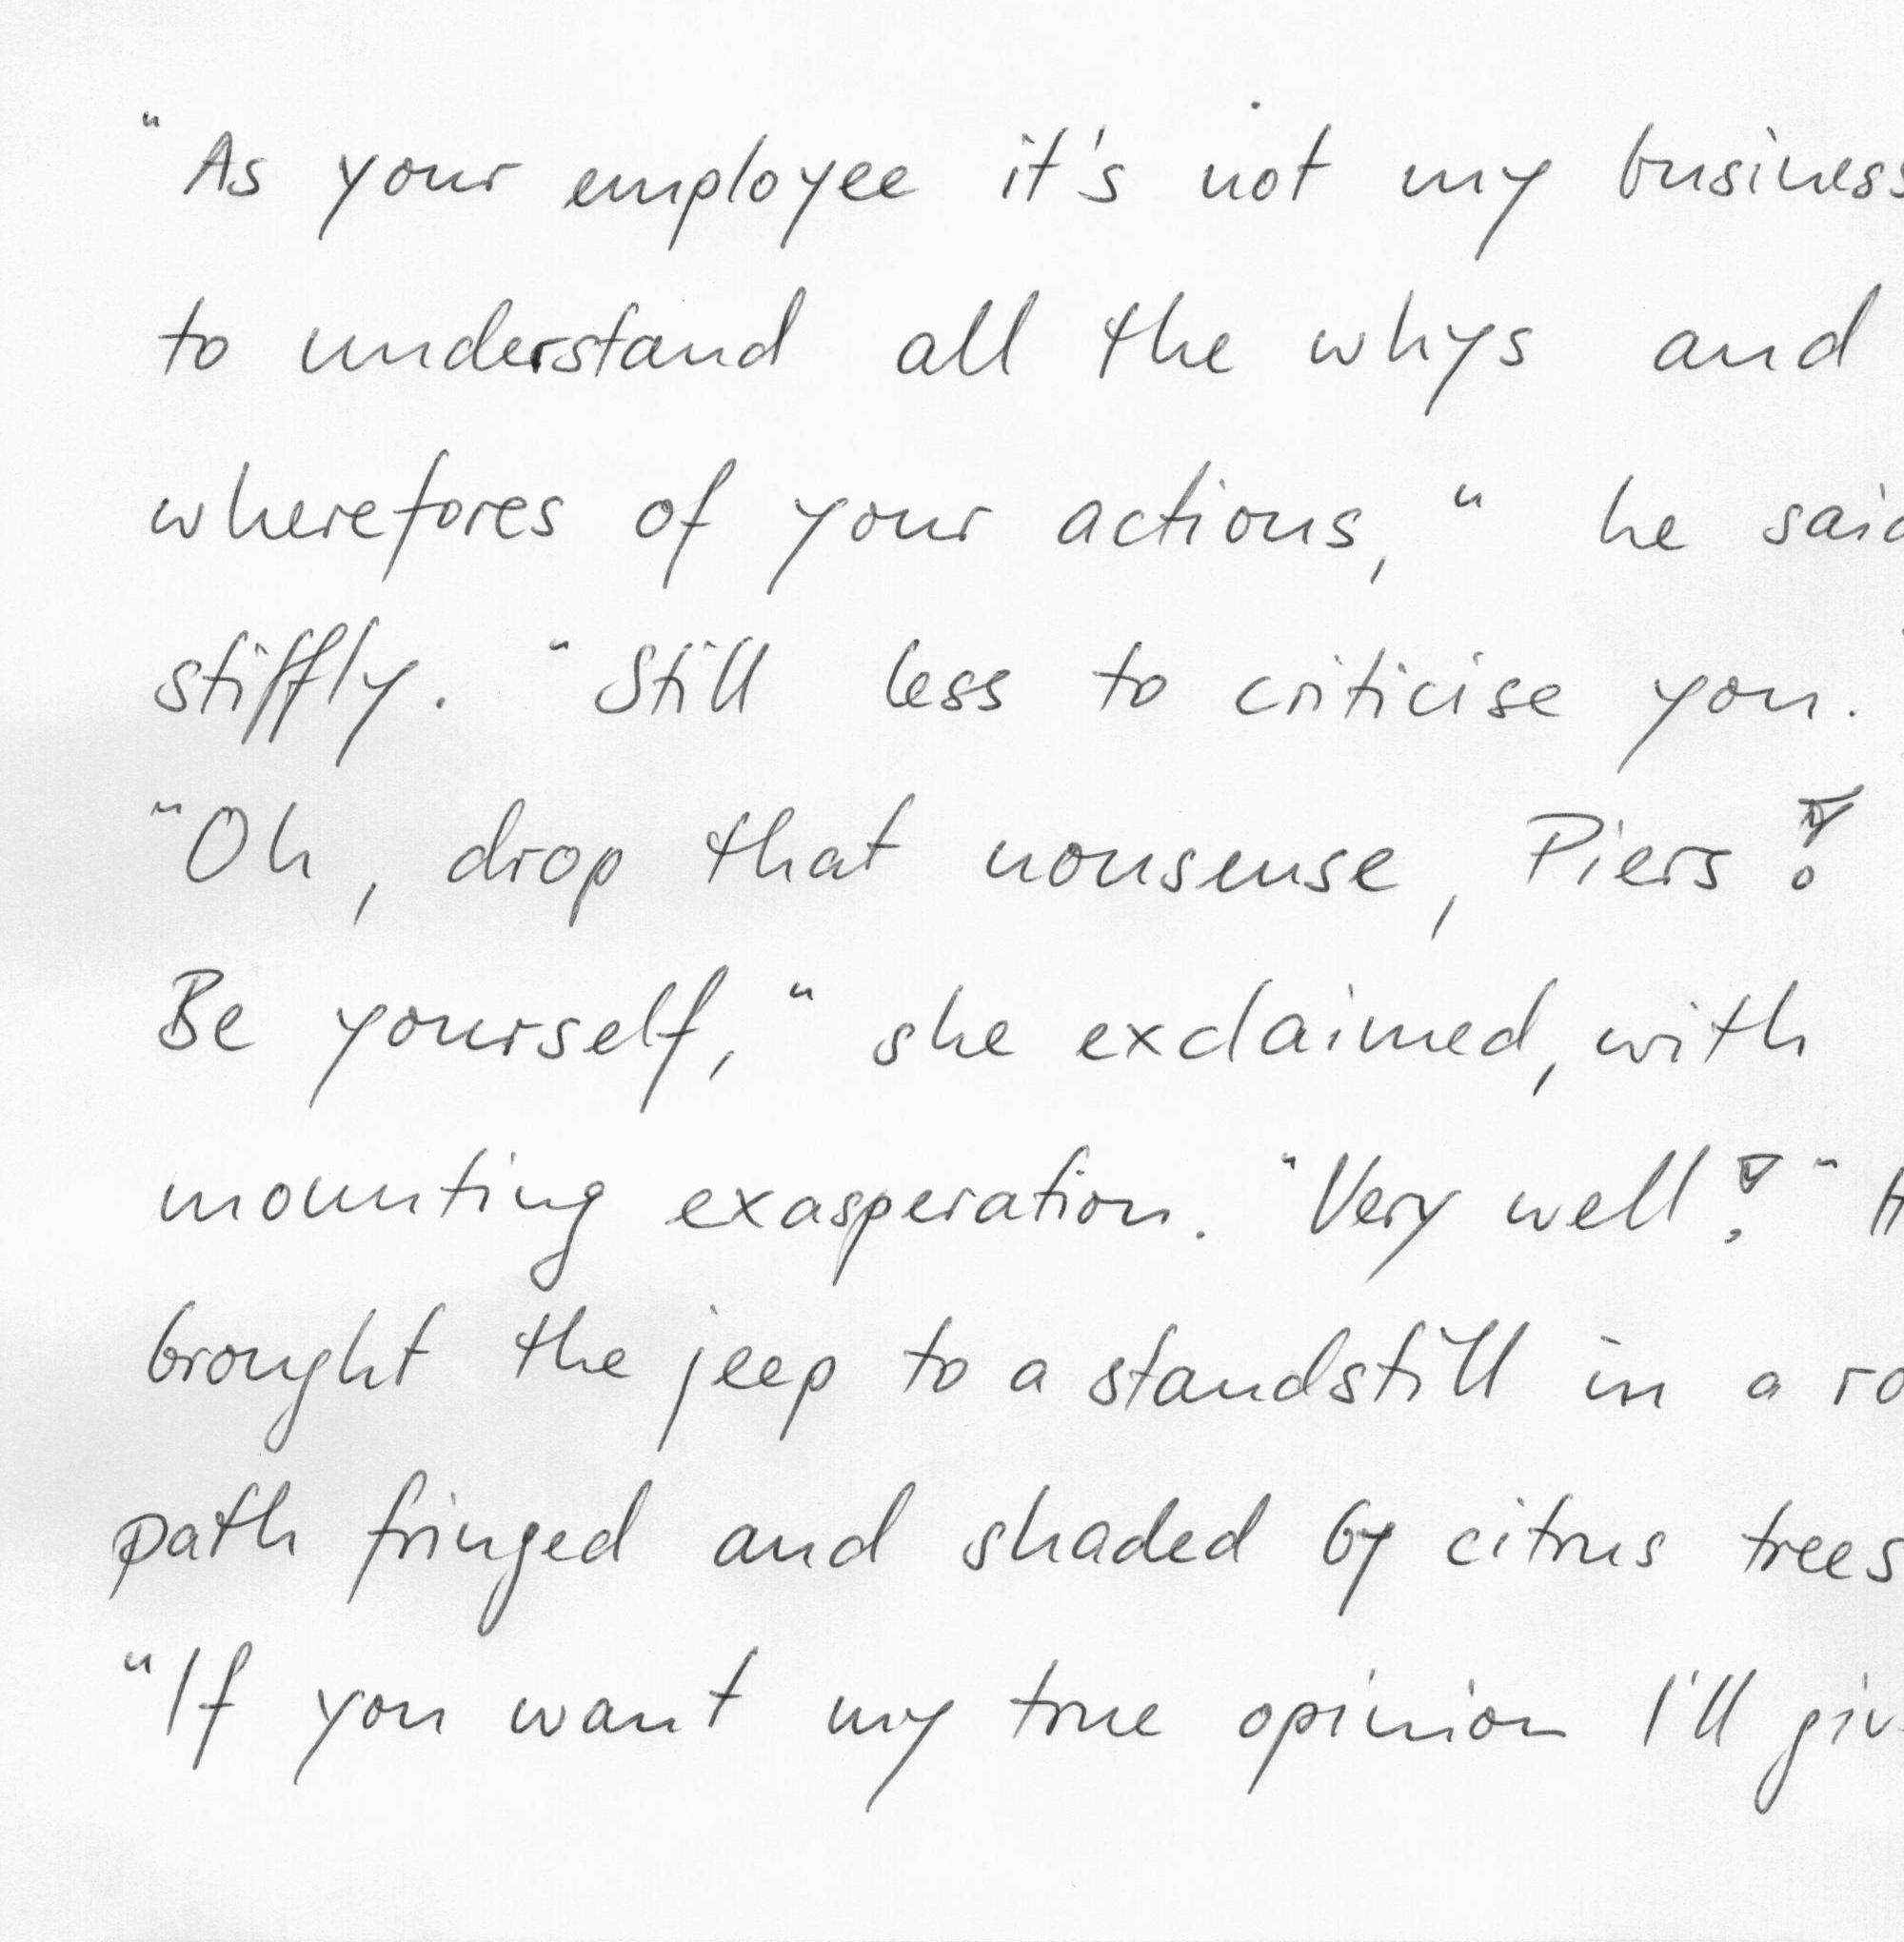 "As your employee it's not my business
to understand all the whys and
wherefores of your actions," he said
stiffly. "Still less to criticise you.
"Oh, drop that nonsense, Piers!
Be yourself," she exclaimed, with
mounting exasperation. "Very well!"
brought the jeep to a standstill in a
path fringed and shaded by citrus trees
"If you want my true opinion I'll